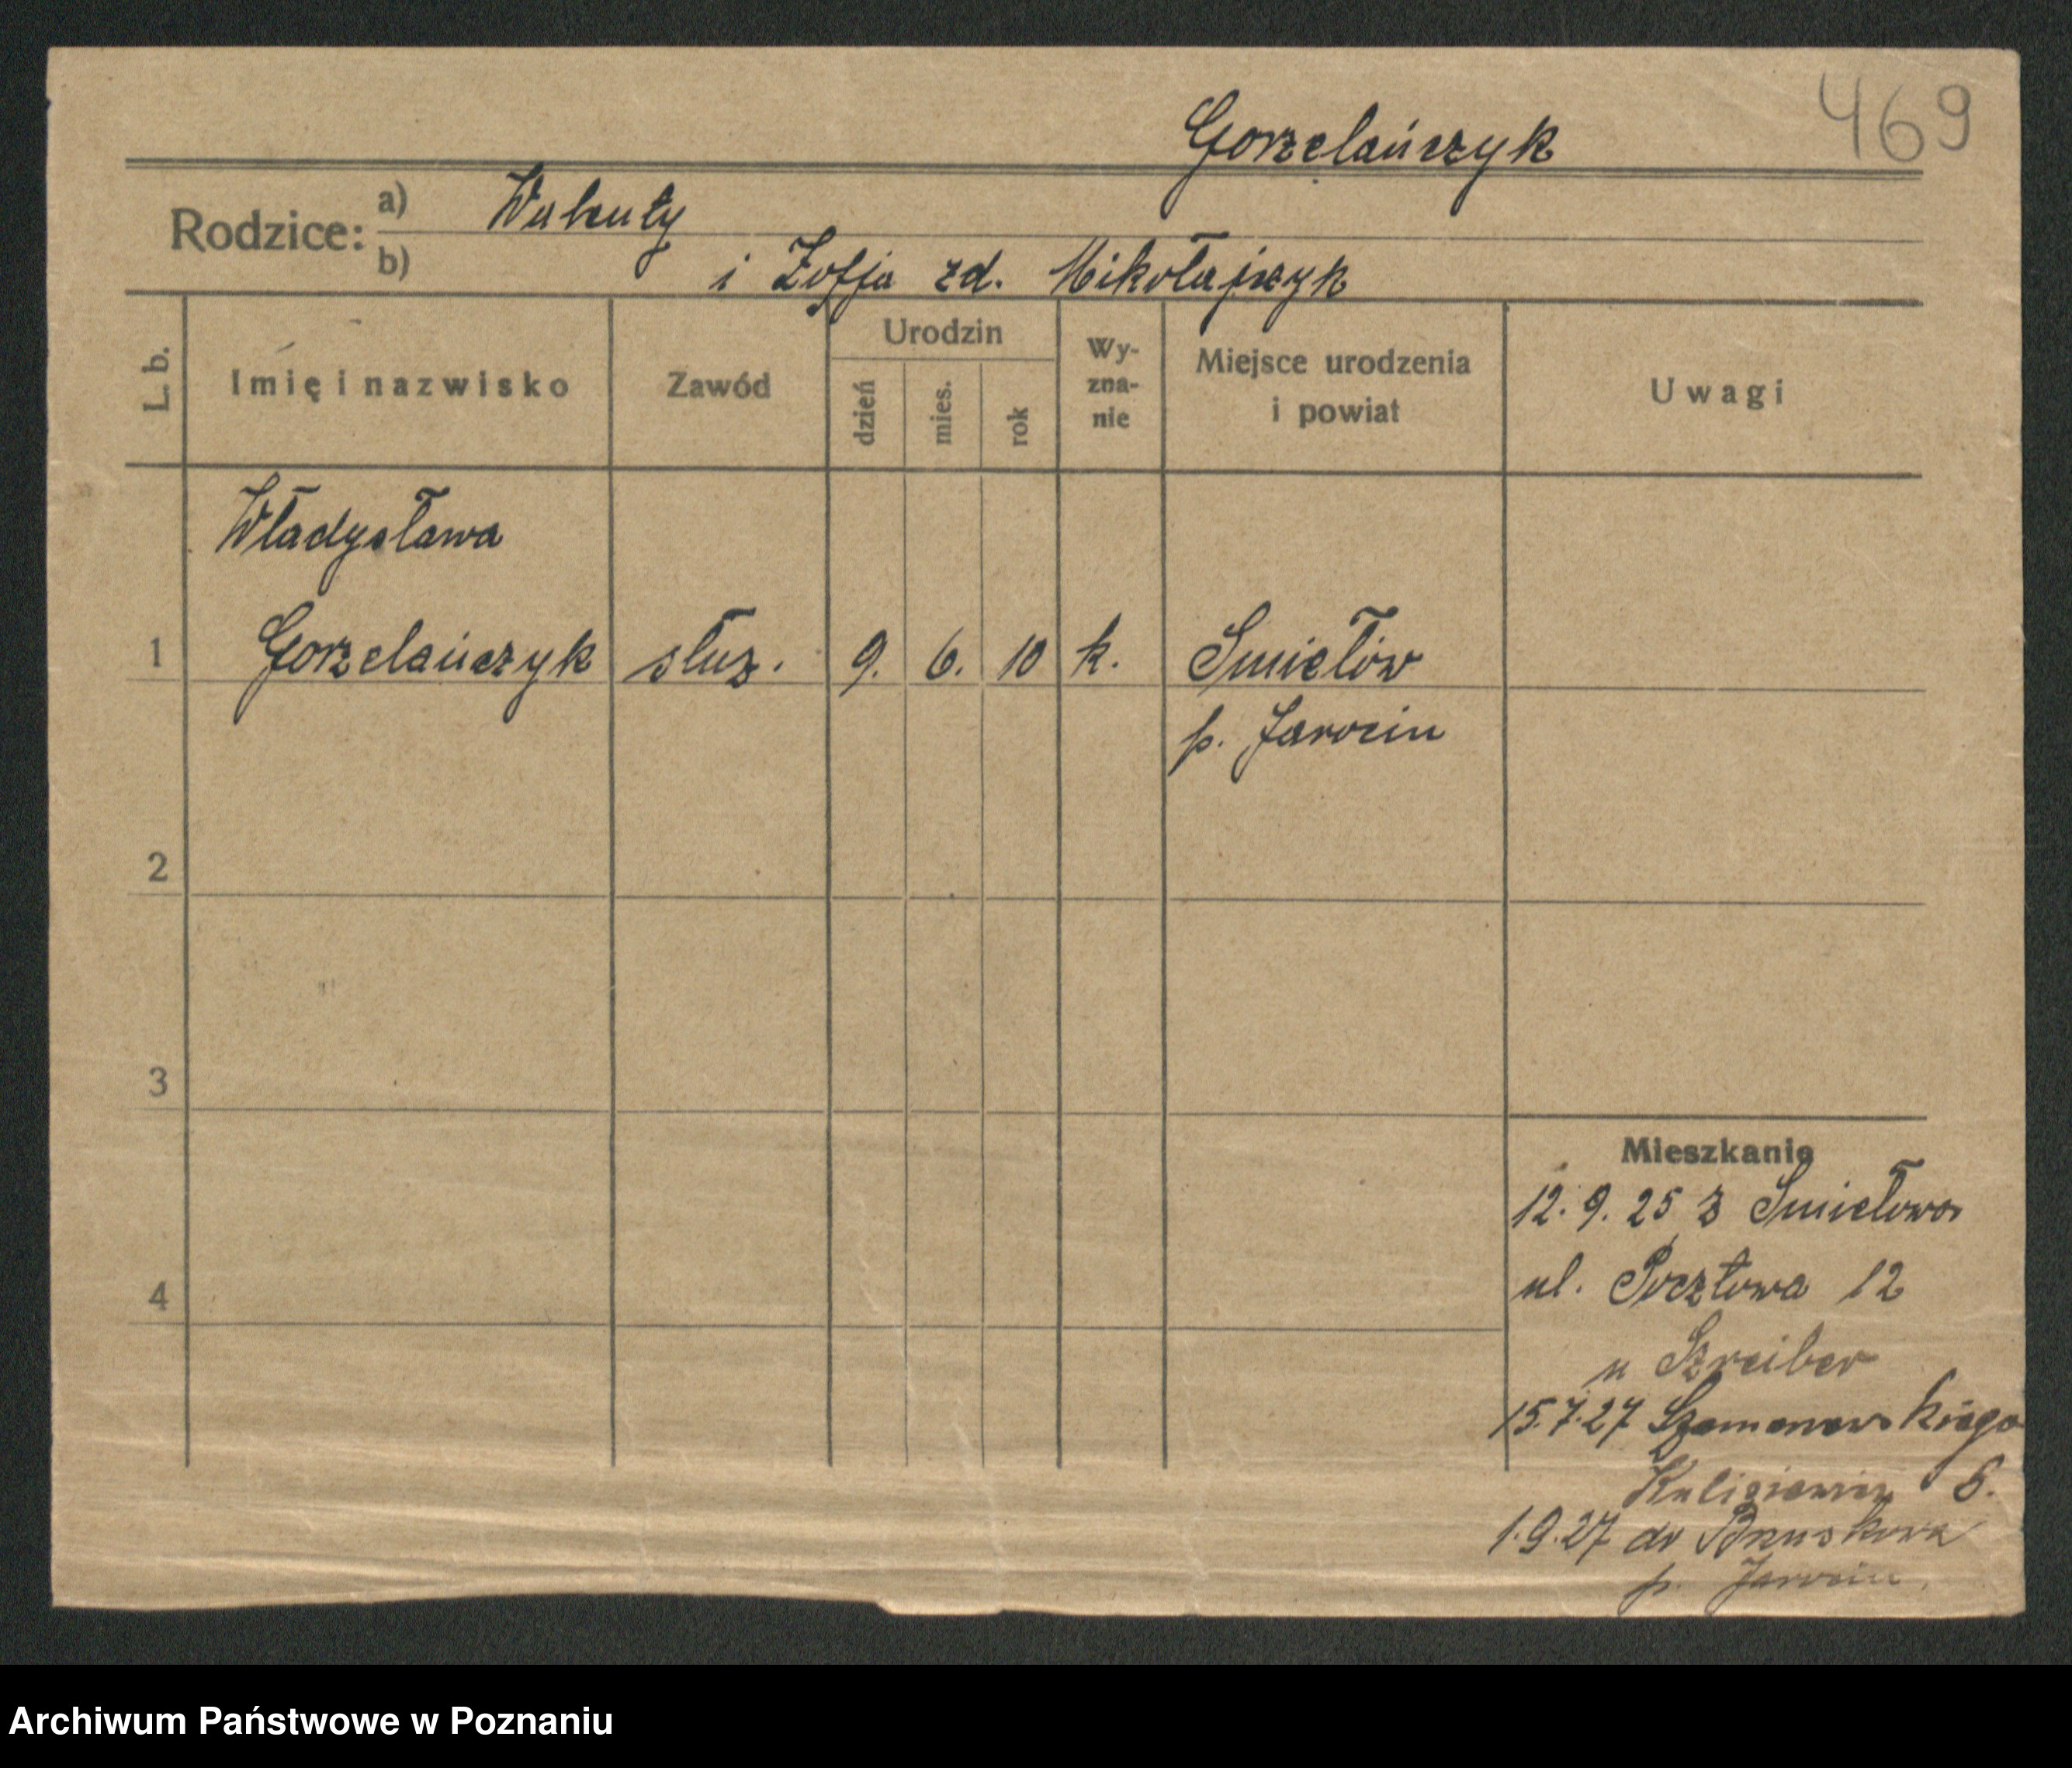 469
Gorzelańczyk
Rodzice: a) Walenty
b) i Zofja zd. Mikołajczyk
L. b. Imię i nazwisko Zawód Urodzin dzień mies. rok Wy-zna-nie Miejsce urodzenia i powiat Uwagi
Władysława
1 Gorzelańczyk służ. 9. 6. 10 k. Smiełów
p. Jarocin
2
3
Mieszkanie
12. 9. 25 z Smiełowa
4 ul. Pocztowa 12
u Szreiber
15.7.27
6.
1.9.27 do
p. Jarocin
Archiwum Państwowe w Poznaniu